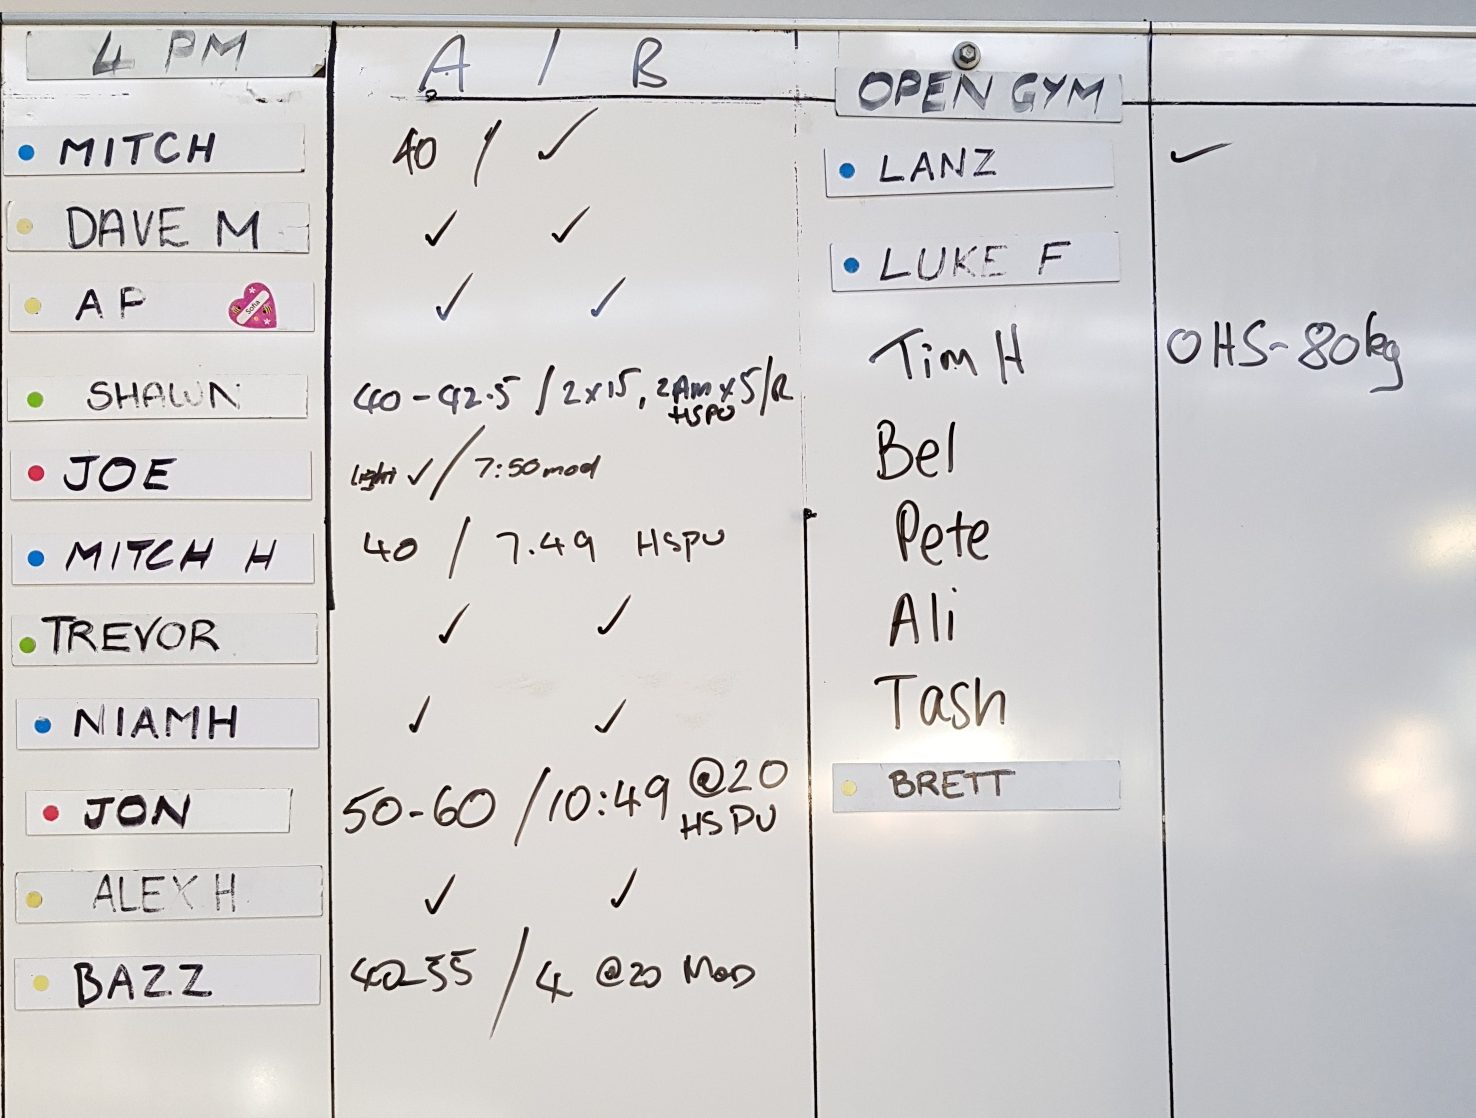 4 PM A / B OPEN GYM
MITCH 40 / ✓
DAVE M ✓ ✓
AP ✓ ✓
Sofia
SHAWN 40-42.5 / 2x15, 2Am x 5/R
HSPU
JOE light ✓ / 7:50 mod
MITCH H 40 / 7.49 HSPU
TREVOR ✓ ✓
NIAMH ✓ ✓
JON 50-60 / 10:49 @20
HSPU
ALEX H ✓ ✓
BAZZ / 4 @20 MOD
LANZ ✓
LUKE F
Tim H OHS-80kg
Bel
Pete
Ali
Tash
BRETT